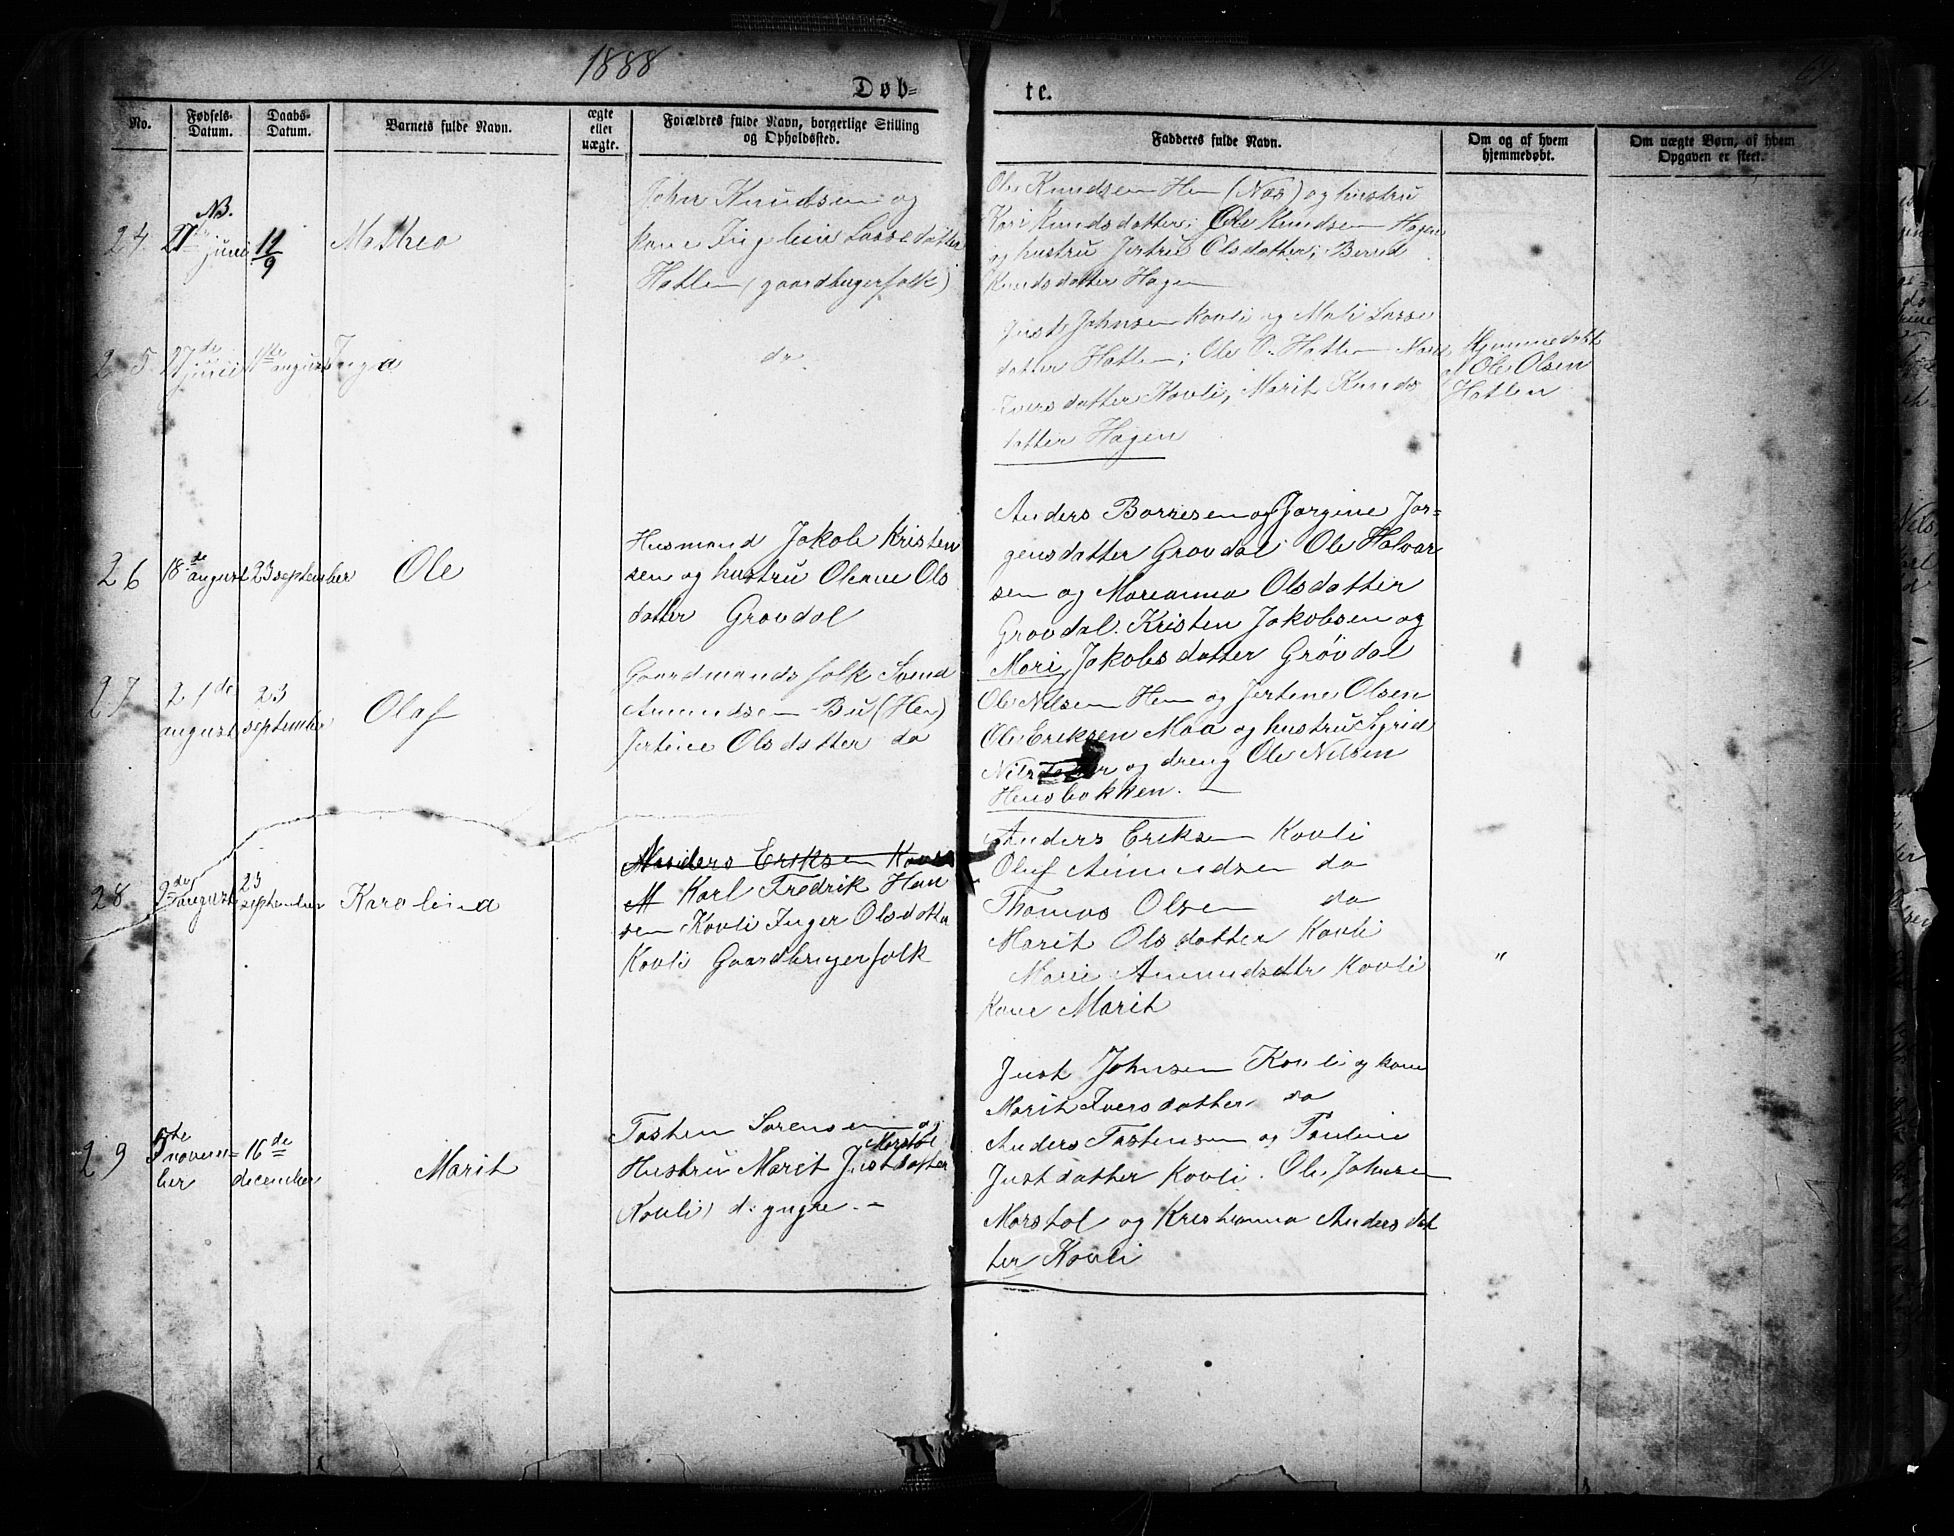 1888
69
Døb=
te.
No.
Fødsels-
Datum.
Daabs-
Datum.
Barnets fulde Navn.
ægte
eller
uægte.
Forældres fulde Navn, borgerlige Stilling
og Opholdssted.
Fadderes fulde Navn.
Om og af hvem
hjemmedøbt.
Om uægte Børn, af hvem
Opgaven er skeet.
NB.
24
27
juni
11
9
Mathea
John Knudsen og
kone Ingelein Lassedatter
Hatlen (gaardbrugerfolk)
Ole Knudsen Hen (Nos) og hustru
Kari Knudsdatter; Ole Knudsen Hagen
og hustru Jertrud Olsdatter; Beret
Knudsdatter Hagen
25
27de
juni
1ste august
Inga
do
Just Johnsen Kovli og Mali Lasse
datter Hatlen; Ole O. Hatlen
Iversdatter Kovli, Marit Knuds
datter Hagen
Hjemmedøbt
af Ole Olsen
Hatlen
26
18de
august
23 september
Ole
Husmand Jakob Kristen
sen og hustru Olene Ols
datter Grøvdal
Anders Borresen og Jørgine Jør=
gensdatter Grøvdal Ole Halvar
sen og Marianna Olsdatter
Grøvdal. Kristen Jakobsen og
Mari Jakobsdatter Grøvdal
27
21de
august
23
september
Olaf
Gaardmandsfolk Svend
Amundsen Bu (Hen)
Jertine Olsdatter do
Ole Nilsen Hen og Jertine Olsen
Ole Eriksen Moa og hustru Sigrid
og dreng Ole Nilsen
Hensbakken.
28
august
23
september
Karolina
Anders Eriksen
M Karl Fredrik Han
sen Kovli Inger Olsdatter
Kovli Gaardbrugerfolk
Anders Eriksen Kovli
Oluf Amundsen do
Thomas Olsen do
Marit Olsdatter Kovli
Marie Amundsdtr Kovli
Kone Marit
"
29
5te
novem=
ber
16de
december
Marit
Tosten Sørensen og
Morstøl
Hustru Marit Justdatter
Kovli d: yngre. -
Just Johnsen Kovli og kone
Marit Iversdatter do
Anders Tostensen og Pauline
Justdatter Kovli. Ole Johnsen
Morstøl og Kristianna Andersdat
ter Kovli